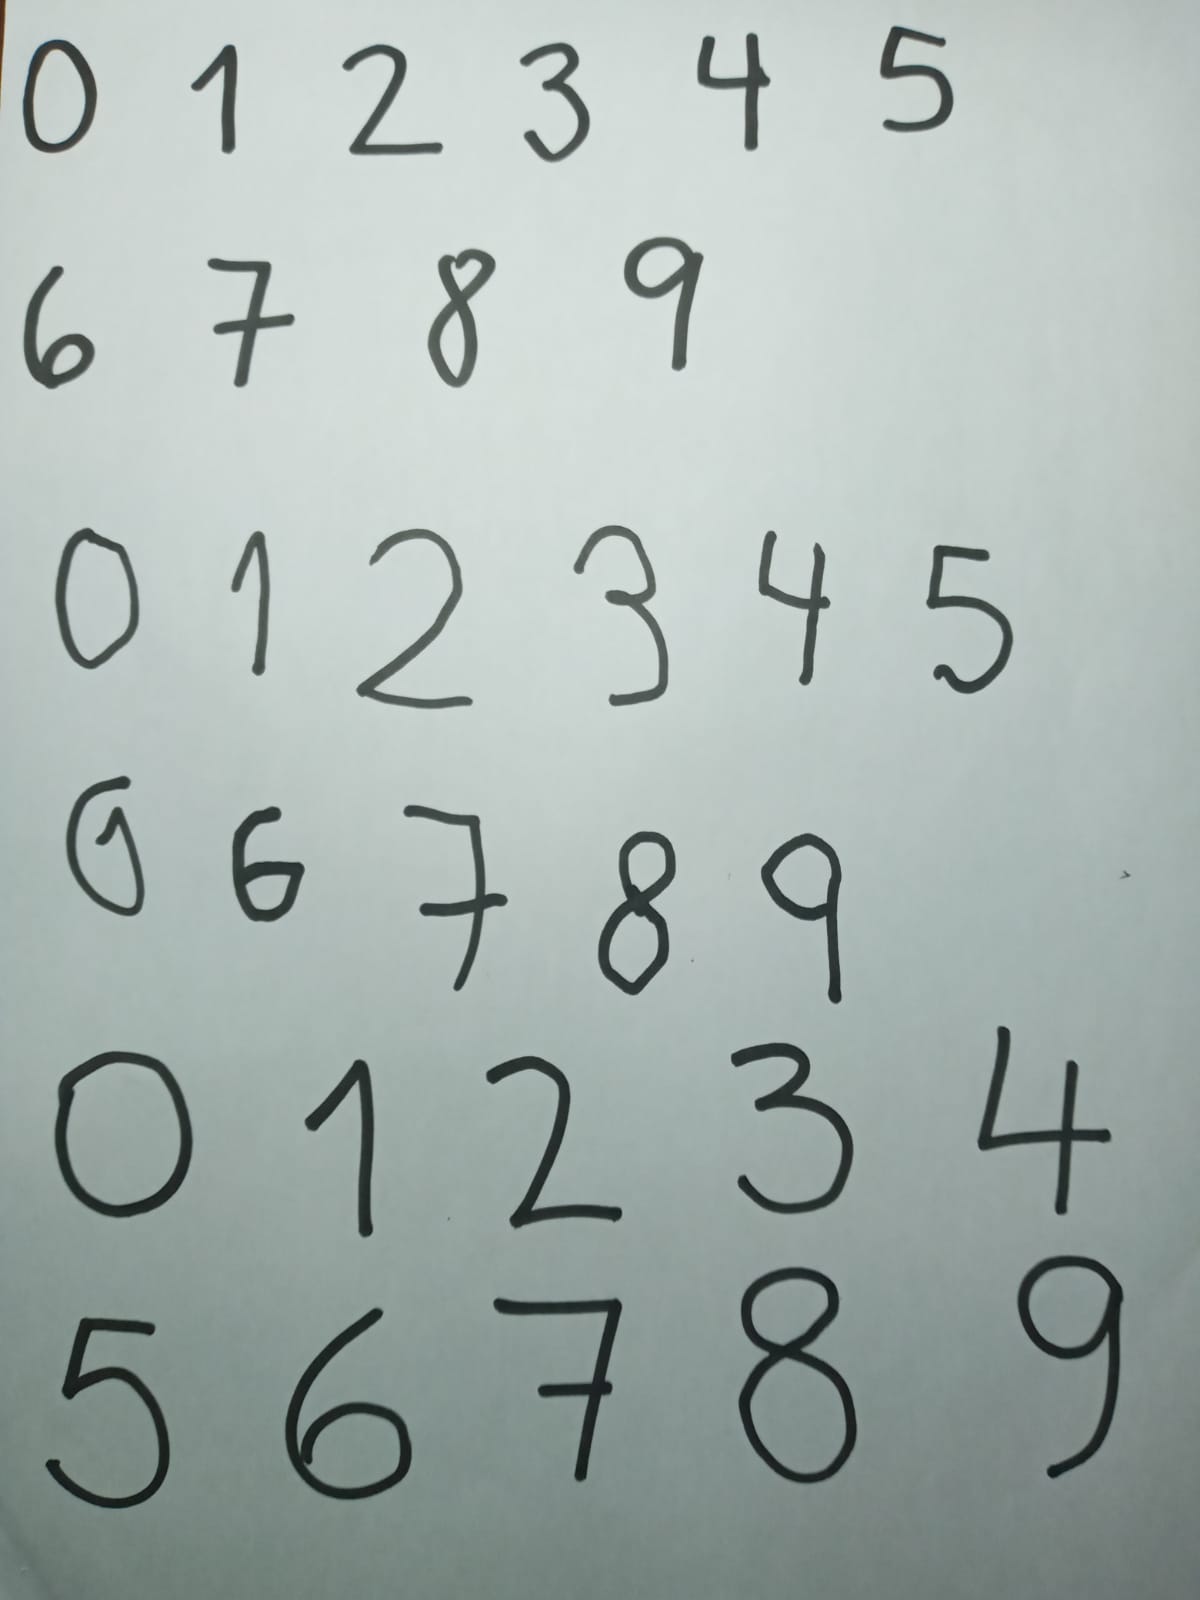 0 1 2 3 4 5
6 7 8 9
0 1 2 3 4 5
6 6 7 8 9
0 1 2 3 4
5 6 7 8 9